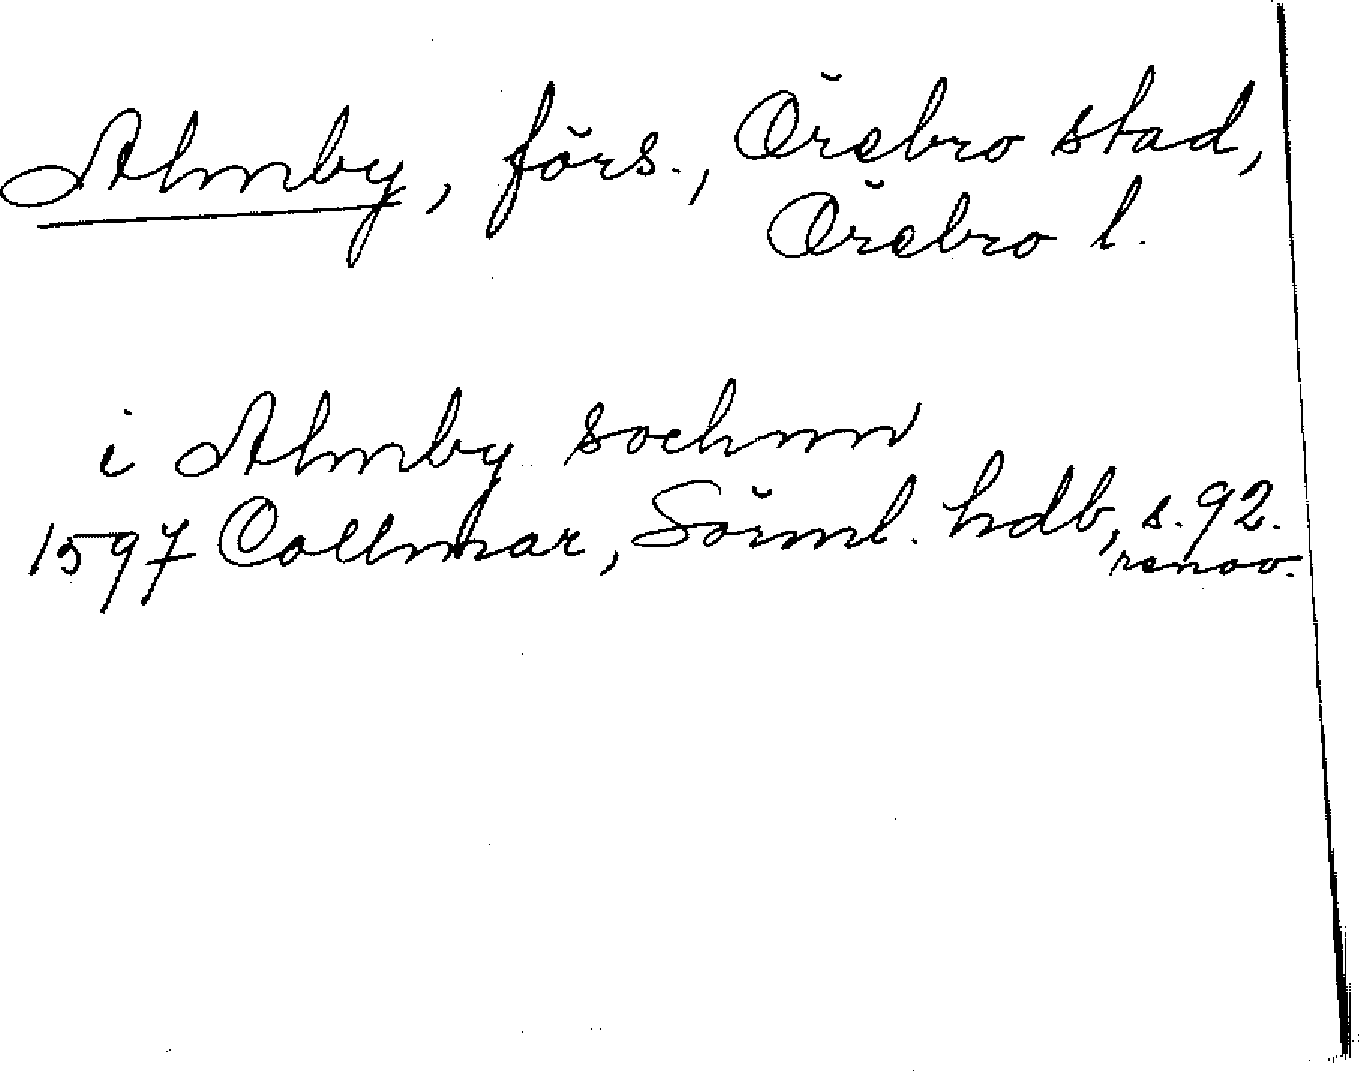 Almby, förs., Örebro stad,
Örebro l.
i Almby sochnn
1597 Collmar, Sörml. hdb, s. 92.
renov.